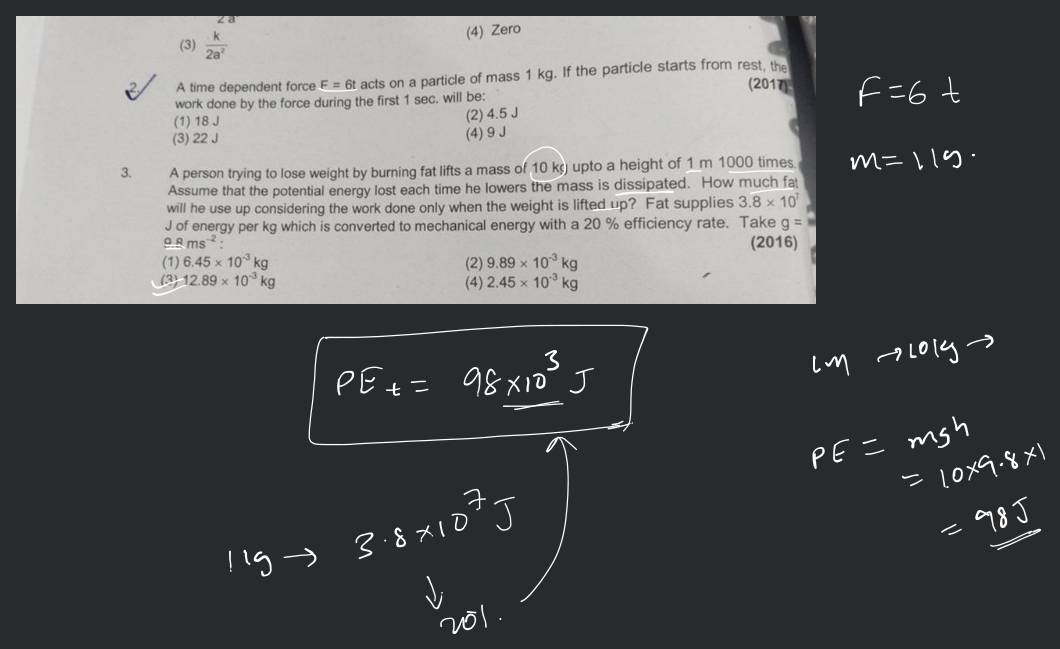 2a
(3) k
2a²
(4) Zero
2. A time dependent force F = 6t acts on a particle of mass 1 kg. If the particle starts from rest, the
work done by the force during the first 1 sec. will be: (2017)
(1) 18 J (2) 4.5 J
(3) 22 J (4) 9 J
3. A person trying to lose weight by burning fat lifts a mass of 10 kg upto a height of 1 m 1000 times.
Assume that the potential energy lost each time he lowers the mass is dissipated. How much fat
will he use up considering the work done only when the weight is lifted up? Fat supplies 3.8 × 10⁷
J of energy per kg which is converted to mechanical energy with a 20 % efficiency rate. Take g =
9.8 ms⁻² : (2016)
(1) 6.45 × 10⁻³ kg (2) 9.89 × 10⁻³ kg
(3) 12.89 × 10⁻³ kg (4) 2.45 × 10⁻³ kg
F = 6 t
m = 1 kg.
1m → 10kg →
PEt = 98×10³ J
PE = mgh
= 10×9.8×1
= 98 J
1kg → 3.8×10⁷ J
↓
20%.